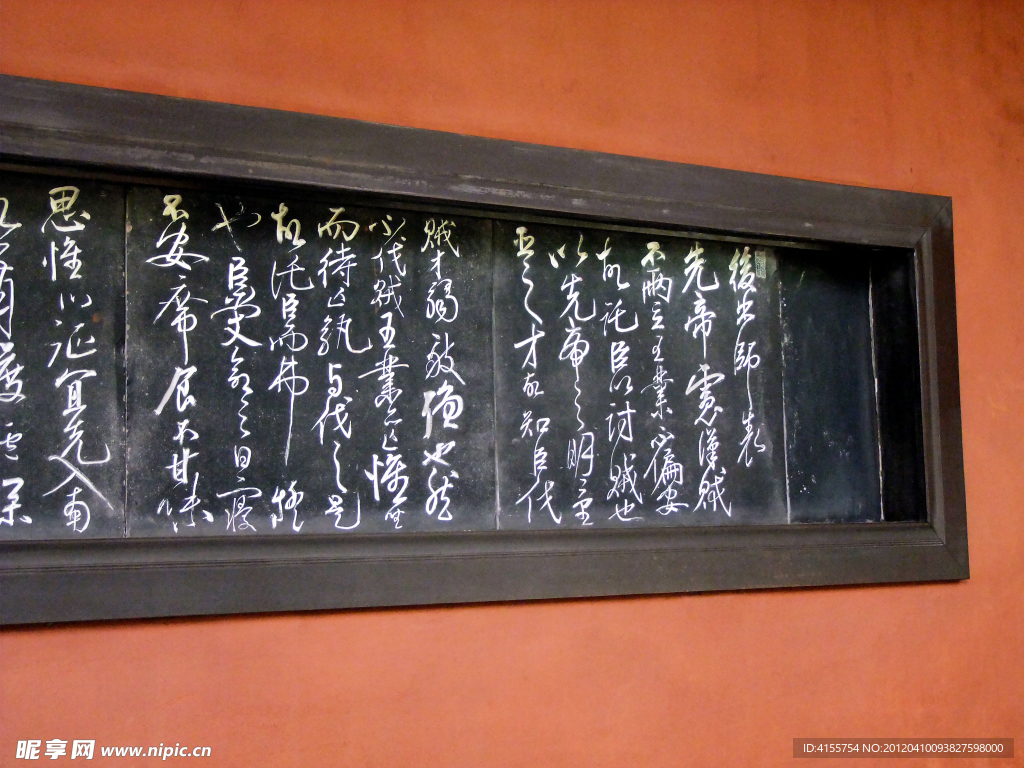 後出師表
先帝慮漢賊
不兩立王業不偏安
故託臣以討賊也
以先帝之明量
臣之才故知臣伐
賊才弱敵強也然
不伐賊王業亦亡惟坐
而待亡孰與伐之是
故託臣而弗疑
也臣受命之日寢
不安席食不甘味
思惟北征宜先入南
昵享网 www.nipic.cn
ID:4155754 NO:20120410093827598000